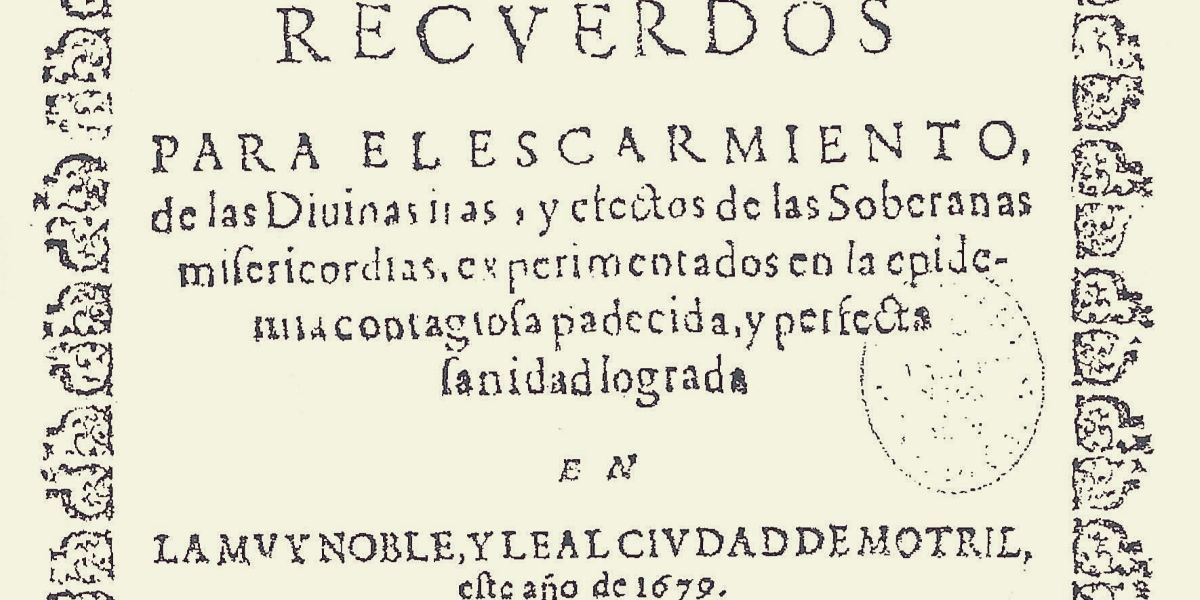 RECVERDOS
PARA EL ESCARMIENTO,
de las Diuinas iras, y efectos de las Soberanas
miſericordias, experimentados en la epide-
mia contagioſa padecida, y perfecta
ſanidad lograda
EN
LA MVY NOBLE, Y LEAL CIVDAD DE MOTRIL,
eſte año de 1679.